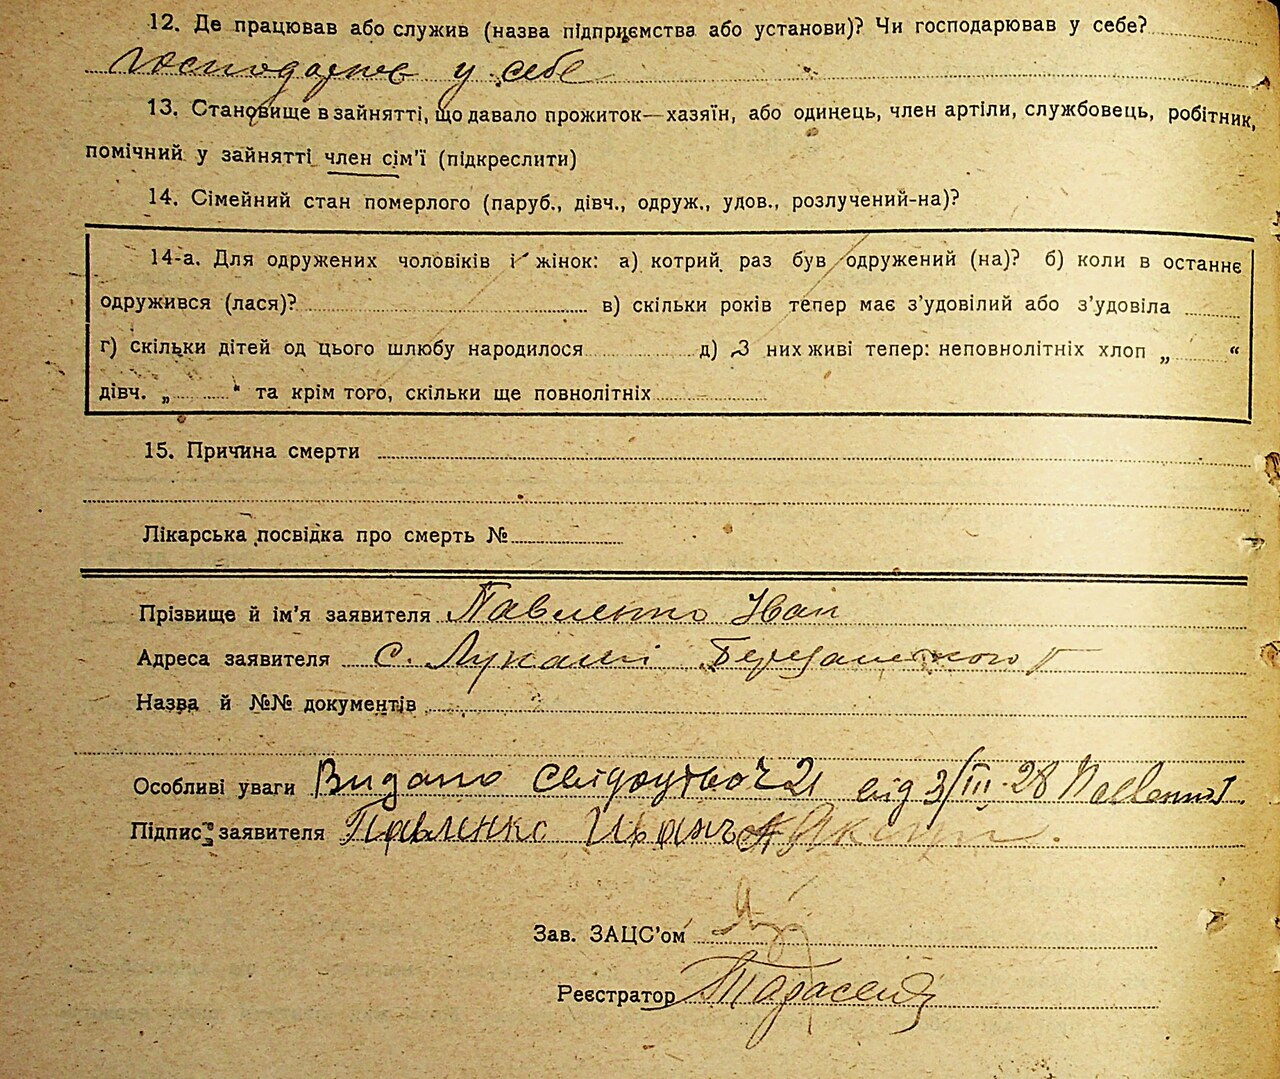 12. Де працював або служив (назва підприємства або установи)? Чи господарював у себе?
господарює у себе
13. Становище в зайнятті, що давало прожиток—хазяїн, або одинець, член артіли, службовець, робітник,
помічний у зайнятті член сім'ї (підкреслити)
14. Сімейний стан померлого (паруб., дівч., одруж., удов., розлучений-на)?
14-а. Для одружених чоловіків і жінок: а) котрий раз був одружений (на)? б) коли в останнє
одружився (лася)? в) скільки років тепер має з'удовілий або з'удовіла
г) скільки дітей од цього шлюбу народилося д) З них живі тепер: неповнолітніх хлоп „ “
дівч. „ “ та крім того, скільки ще повнолітніх
15. Причина смерти
Лікарська посвідка про смерть №
Прізвище й ім'я заявителя Павленко Іван
Адреса заявителя с. Лукаші
Назва й №№ документів
Особливі уваги Видано 21 від 3/III-28
Підпис заявителя Павленко Иванъ
Зав. ЗАЦС'ом
Реєстратор